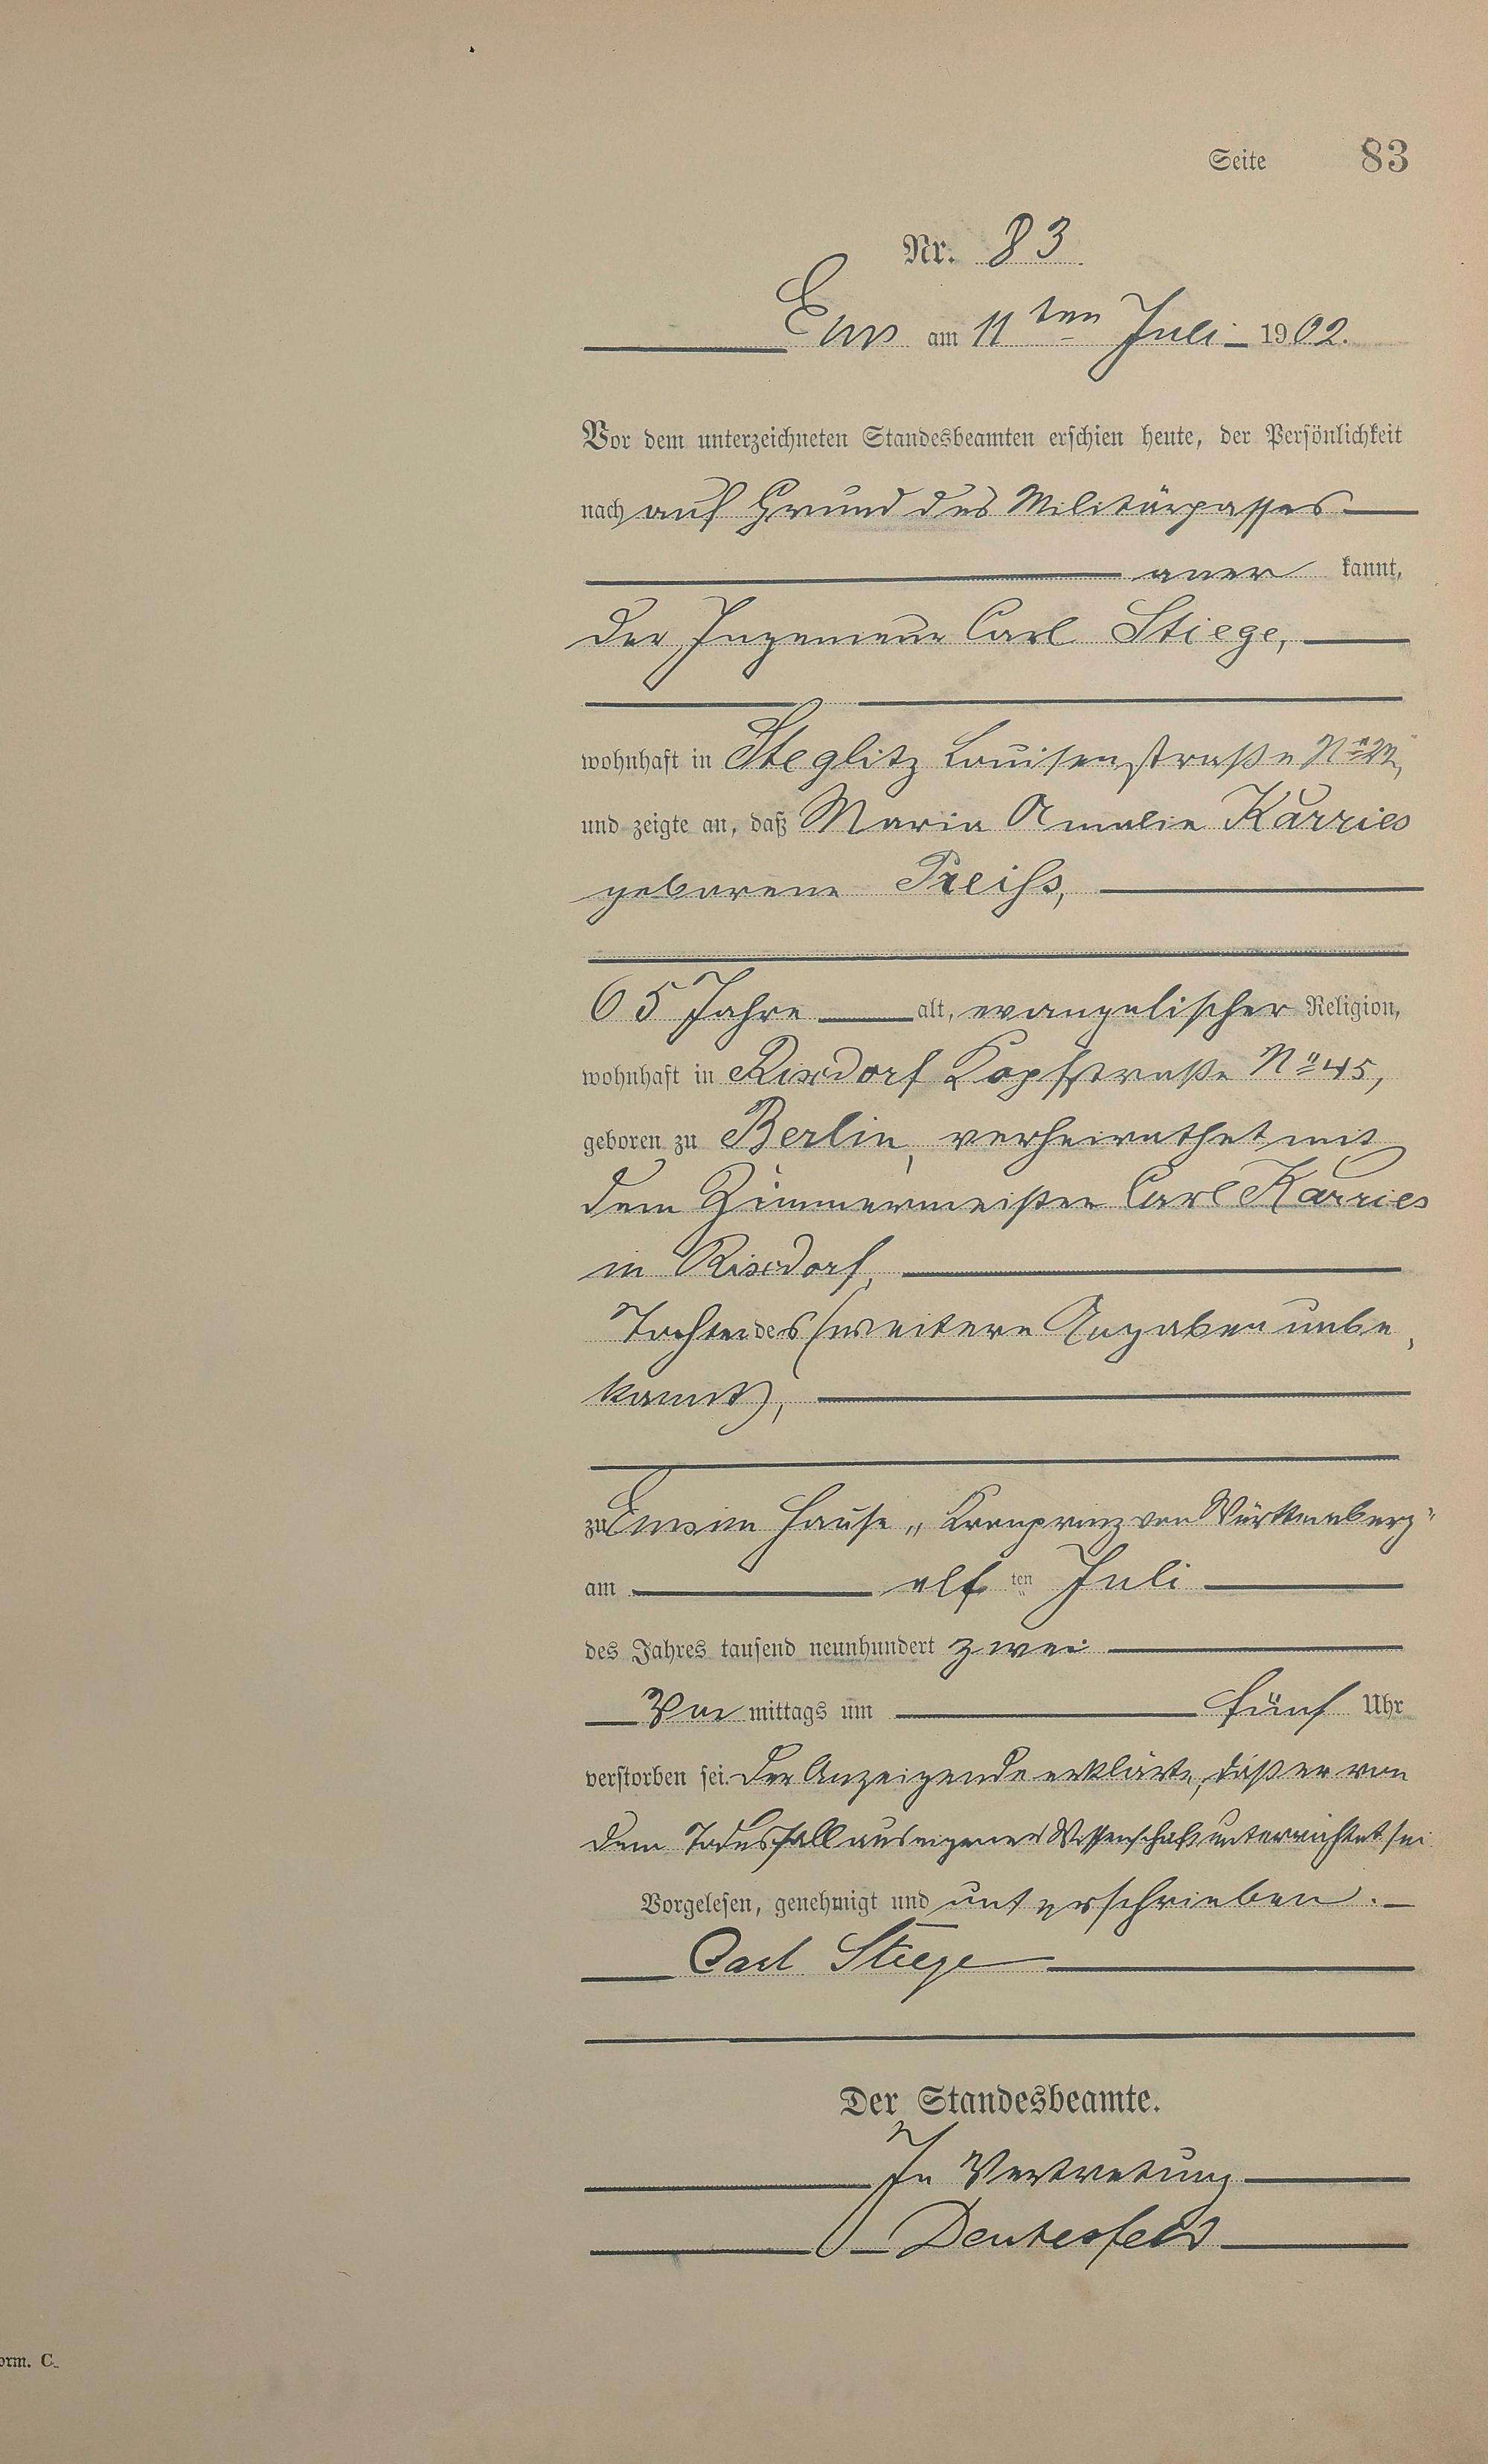 Seite 83
Nr. 83
Ems am 11ten Juli 1902.
Vor dem unterzeichneten Standesbeamten erschien heute, der Persönlichkeit
nach auf Grund des Militärpasses
aner kannt,
der Ingenieur Carl Stiege,
wohnhaft in Steglitz Louisenstraße No
und zeigte an, daß Maria Amalie Karries
geborene Preiss,
65 Jahre alt, evangelischer Religion,
wohnhaft in Rixdorf Kopfstraße No 45,
geboren zu Berlin, verheirathet mit
dem Zimmermeister Carl Karries
in Rixdorf,
Tochter des (weitere Angaben unbe,
kannt),
zu Ems im Hause „Kronprinz von Württemberg"
am elf ten Juli
des Jahres tausend neunhundert zwei
Vor mittags um fünf Uhr
verstorben sei. Der Anzeigende erklärte, daß er von
dem Todesfall aus eigener Wissenschaft unterrichtet sei
Vorgelesen, genehmigt und unterschrieben.
Carl Stiege
Der Standesbeamte.
In Vertretung
orm. C.